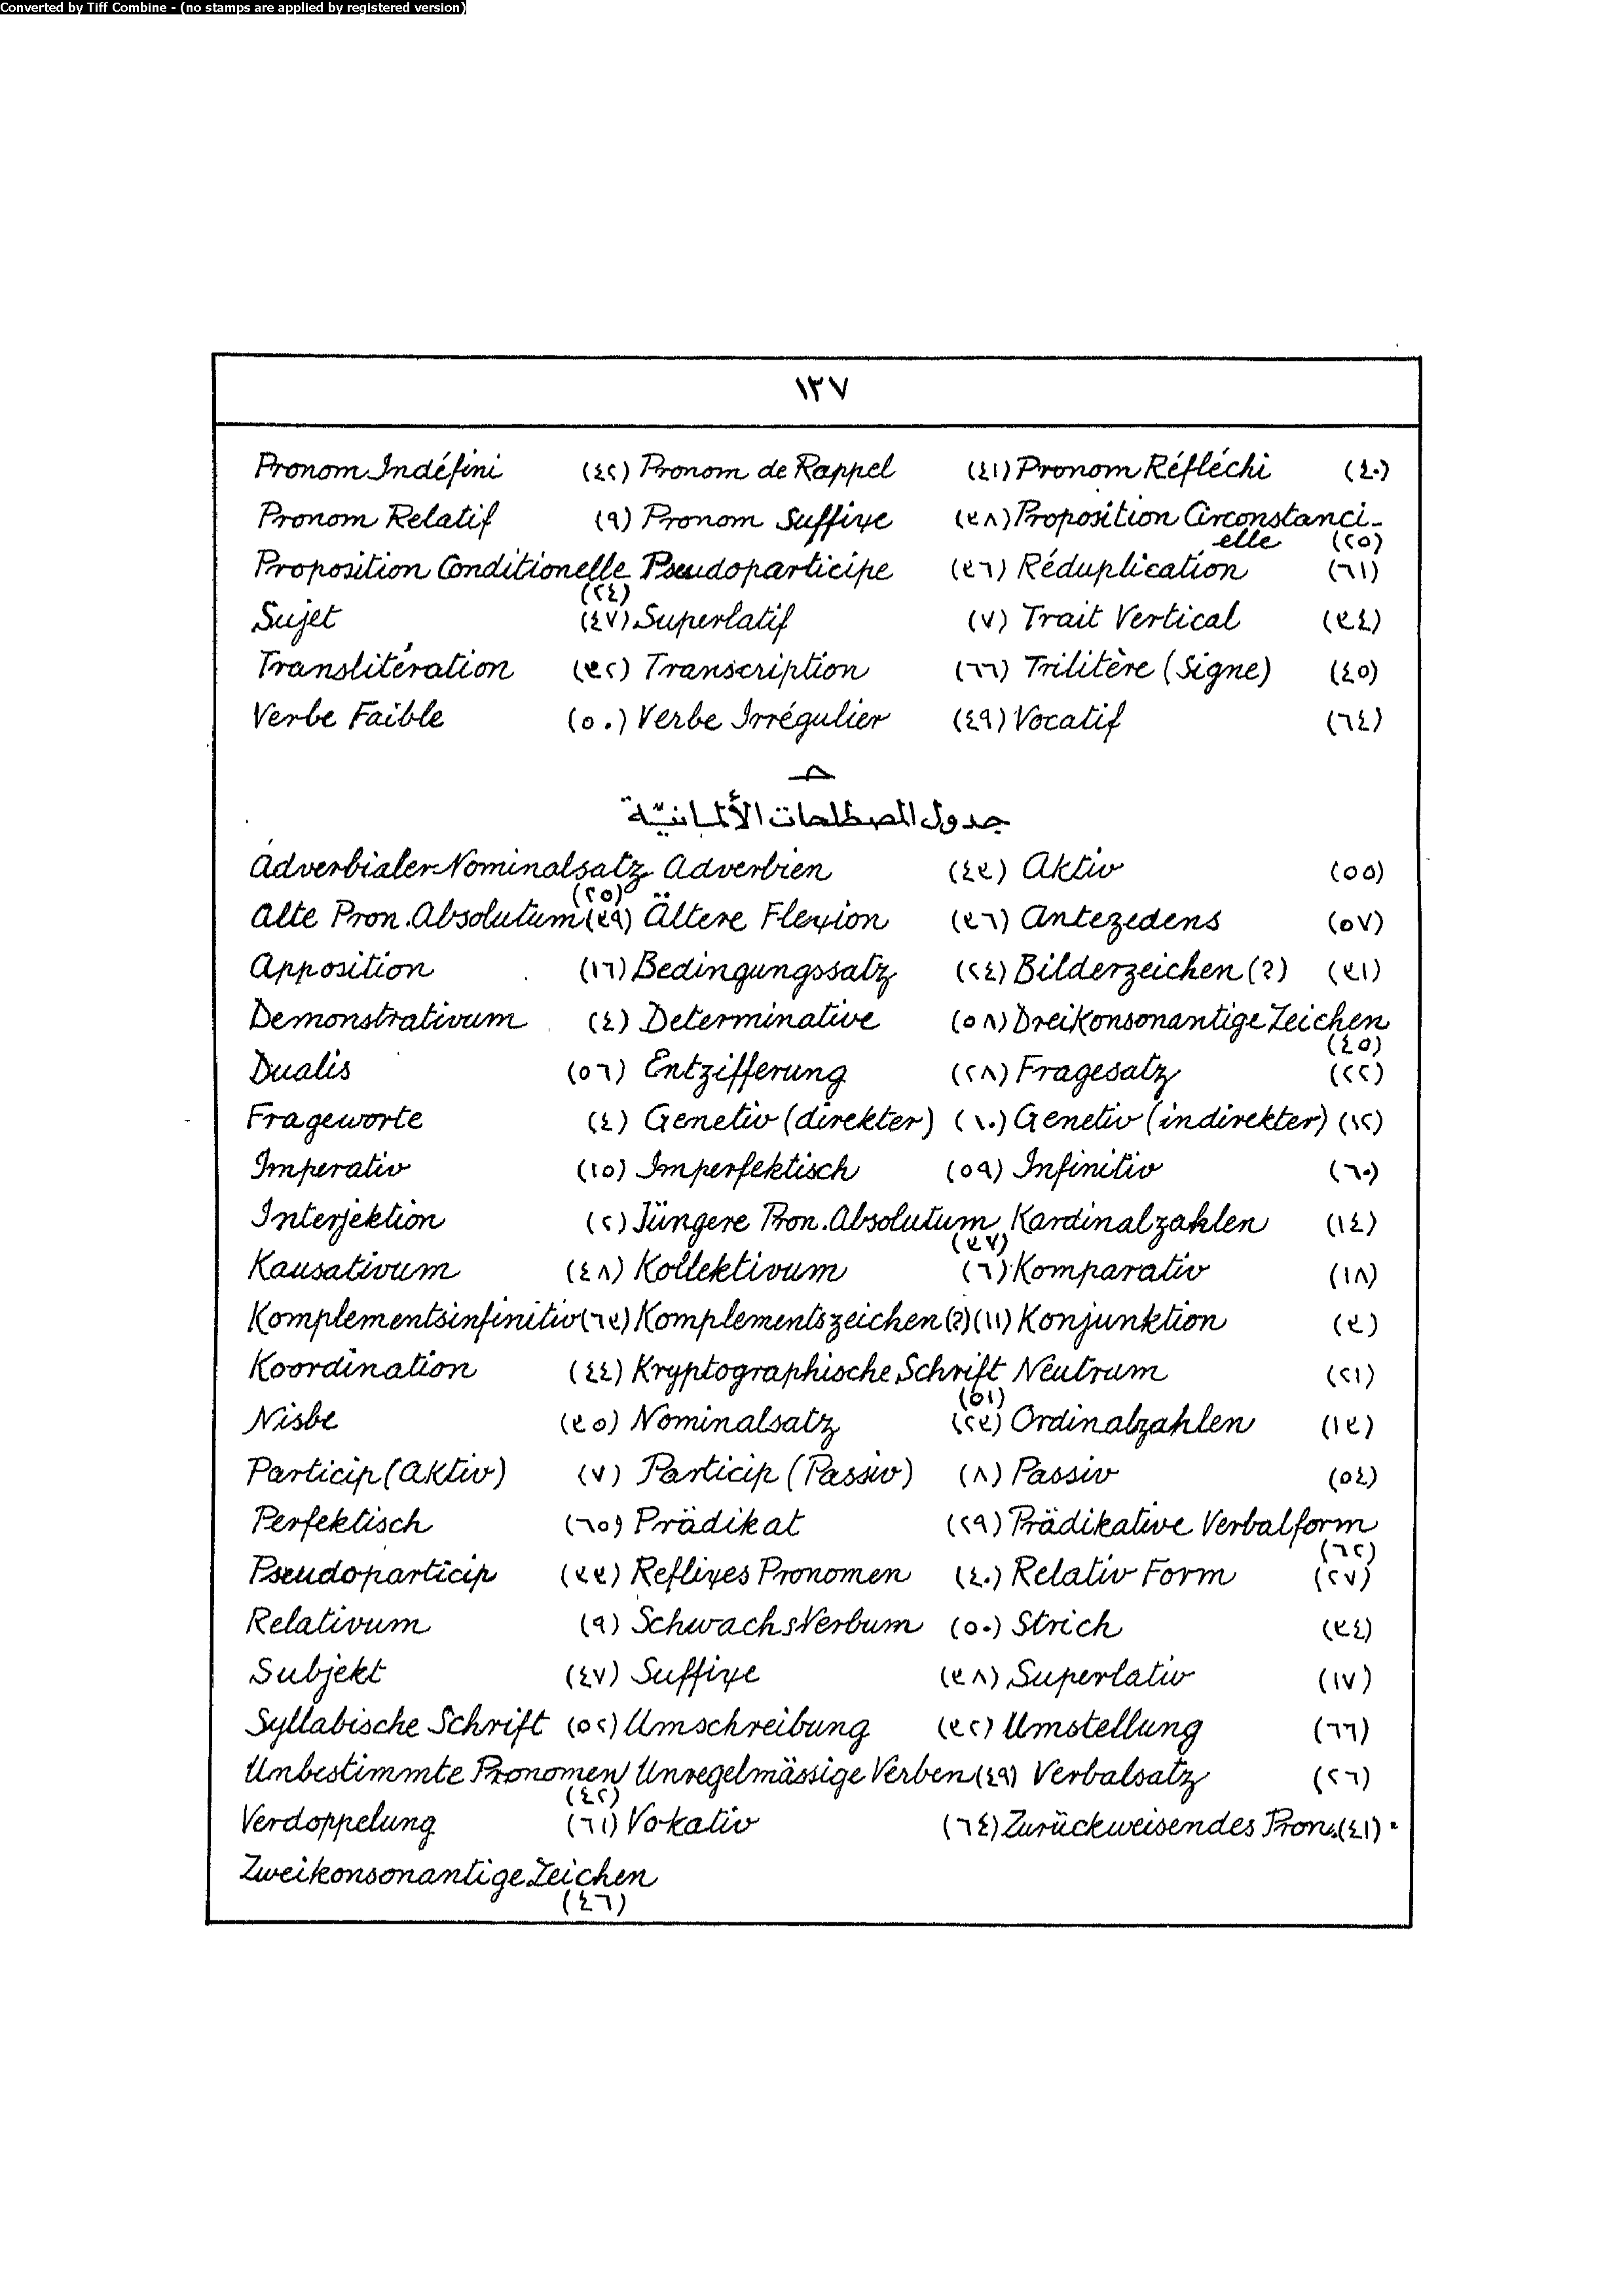 Converted by Tiff Combine - (no stamps are applied by registered version)
١٣٧
Pronom Indéfini (٤٢) Pronom de Rappel (٤١) Pronom Réfléchi (٤٠)
Pronom Relatif (٩) Pronom Suffixe (٣٨) Proposition Circonstanci-
elle (٢٥)
Proposition Conditionelle Pseudoparticipe (٣٦) Réduplication (٦١)
(٢٤)
Sujet (٤٧) Superlatif (٧) Trait Vertical (٣٤)
Translitération (٣٢) Transcription (٦٦) Trilitère (Signe) (٤٥)
Verbe Faible (٥٠) Verbe Irrégulier (٤٩) Vocatif (٦٤)
جدول المصطلحات الألمانيّة
Adverbialer Nominalsatz Adverbien (٤٣) Aktiv (٥٥)
(٢٥)
Alte Pron. Absolutum (٣٩) Ältere Flexion (٣٦) Antezedens (٥٧)
Apposition (١٦) Bedingungssatz (٢٤) Bilderzeichen (?) (٣١)
Demonstrativum (٤) Determinative (٥٨) Dreikonsonantige Zeichen
(٤٥)
Dualis (٥٦) Entzifferung (٢٨) Fragesatz (٢٢)
Frageworte (٤) Genetiv (direkter) (١٠) Genetiv (indirekter) (١٢)
Imperativ (١٥) Imperfektisch (٥٩) Infinitiv (٦٠)
Interjektion (٢) Jüngere Pron. Absolutum Kardinalzahlen (١٤)
(٣٧)
Kausativum (٤٨) Kollektivum (٦) Komparativ (١٨)
Komplementsinfinitiv (٦٣) Komplementszeichen (?) (١١) Konjunktion (٣)
Koordination (٤٤) Kryptographische Schrift Neutrum (٢١)
(٥١)
Nisbe (٣٥) Nominalsatz (٢٣) Ordinalzahlen (١٣)
Particip (Aktiv) (٧) Particip (Passiv) (٨) Passiv (٥٤)
Perfektisch (٦٥) Prädikat (٢٩) Prädikative Verbalform
(٦٢)
Pseudoparticip (٣٣) Reflixes Pronomen (٤٠) Relativ Form (٢٧)
Relativum (٩) Schwachs Verbum (٥٠) Strich (٣٤)
Subjekt (٤٧) Suffixe (٣٨) Superlativ (١٧)
Syllabische Schrift (٥٢) Umschreibung (٣٢) Umstellung (٦٦)
Unbestimmte Pronomen Unregelmässige Verben (٤٩) Verbalsatz (٢٦)
(٤٢)
Verdoppelung (٦١) Vokativ (٦٤) Zurückweisendes Pron. (٤١)
Zweikonsonantige Zeichen
(٤٦)